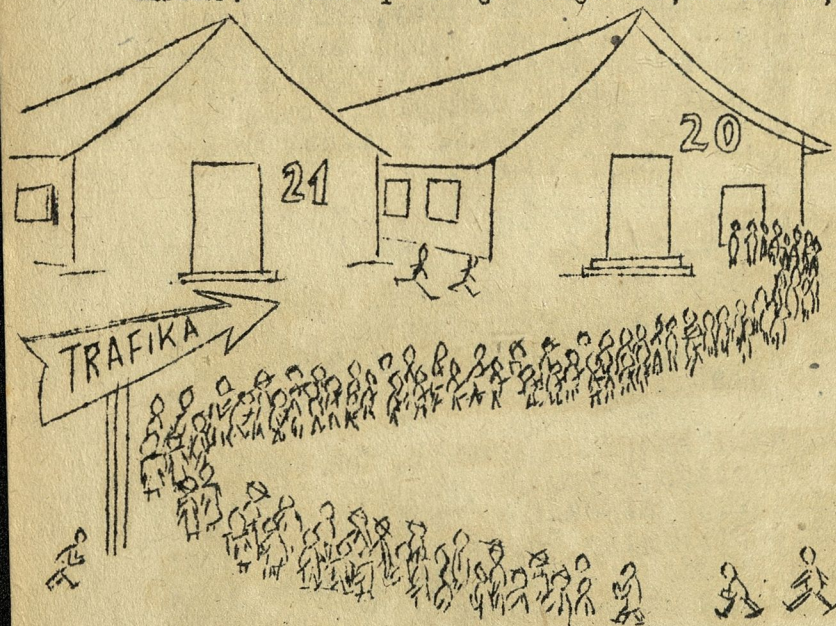 20
21
TRAFIKA